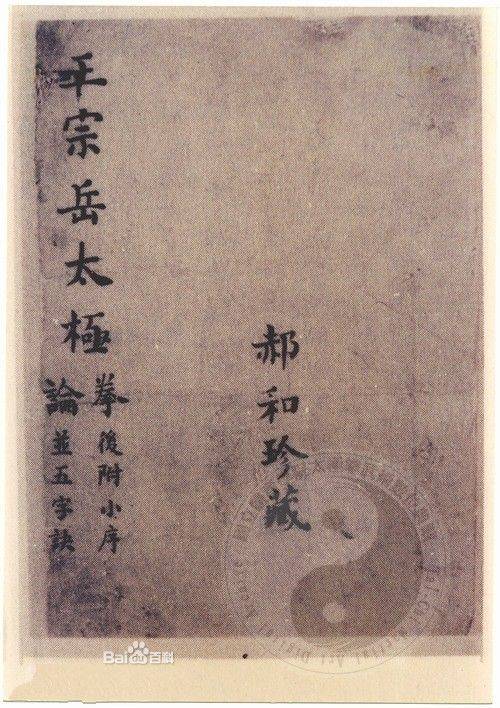 郝和珍藏
王宗岳太極
拳後附小序
論並五字訣
Bai百科